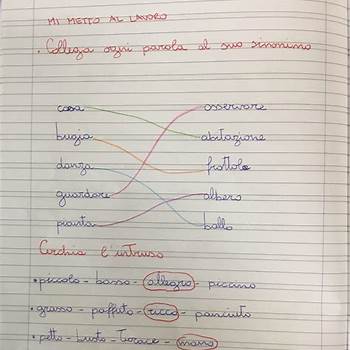 MI METTO AL LAVORO
• Collega ogni parola al suo sinonimo
casa osservare
bugia abitazione
danza frottola
guardare albero
pianta ballo
Cerchia l'intruso
• piccolo - basso - allegro - piccino
• grasso - paffuto - ricco - panciuto
• petto - busto - torace - mano